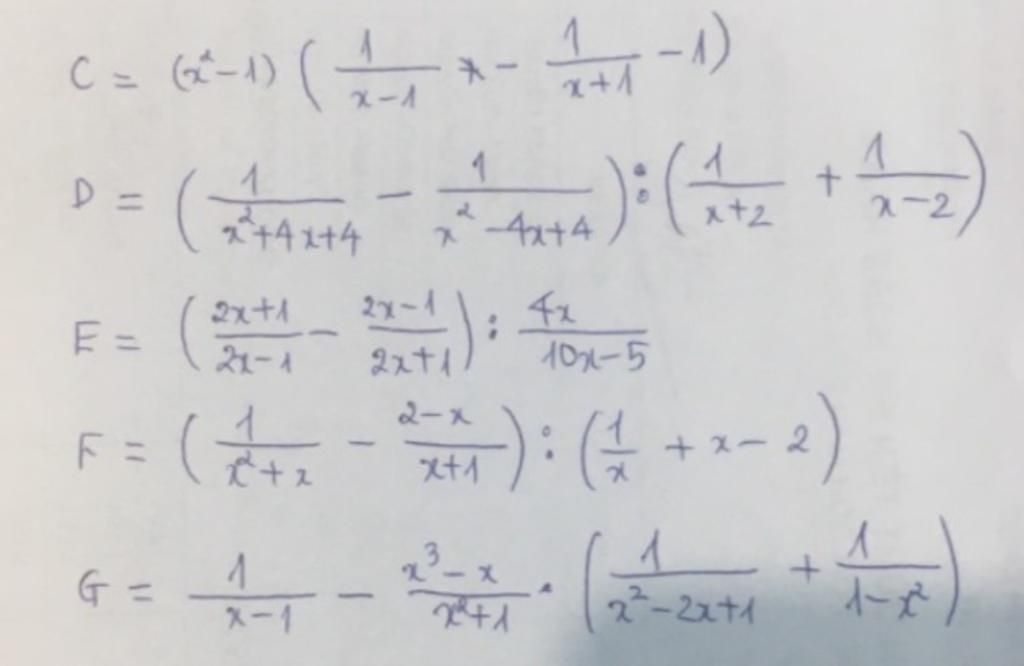 C = (x² - 1) ( 1/(x-1) - 1/(x+1) - 1 )
D = ( 1/(x²+4x+4) - 1/(x²-4x+4) ) : ( 1/(x+2) + 1/(x-2) )
E = ( (2x+1)/(2x-1) - (2x-1)/(2x+1) ) : 4x/(10x-5)
F = ( 1/(x²+x) - (2-x)/(x+1) ) : ( 1/x + x - 2 )
G = 1/(x-1) - (x³-x)/(x²+1) . ( 1/(x²-2x+1) + 1/(1-x²) )